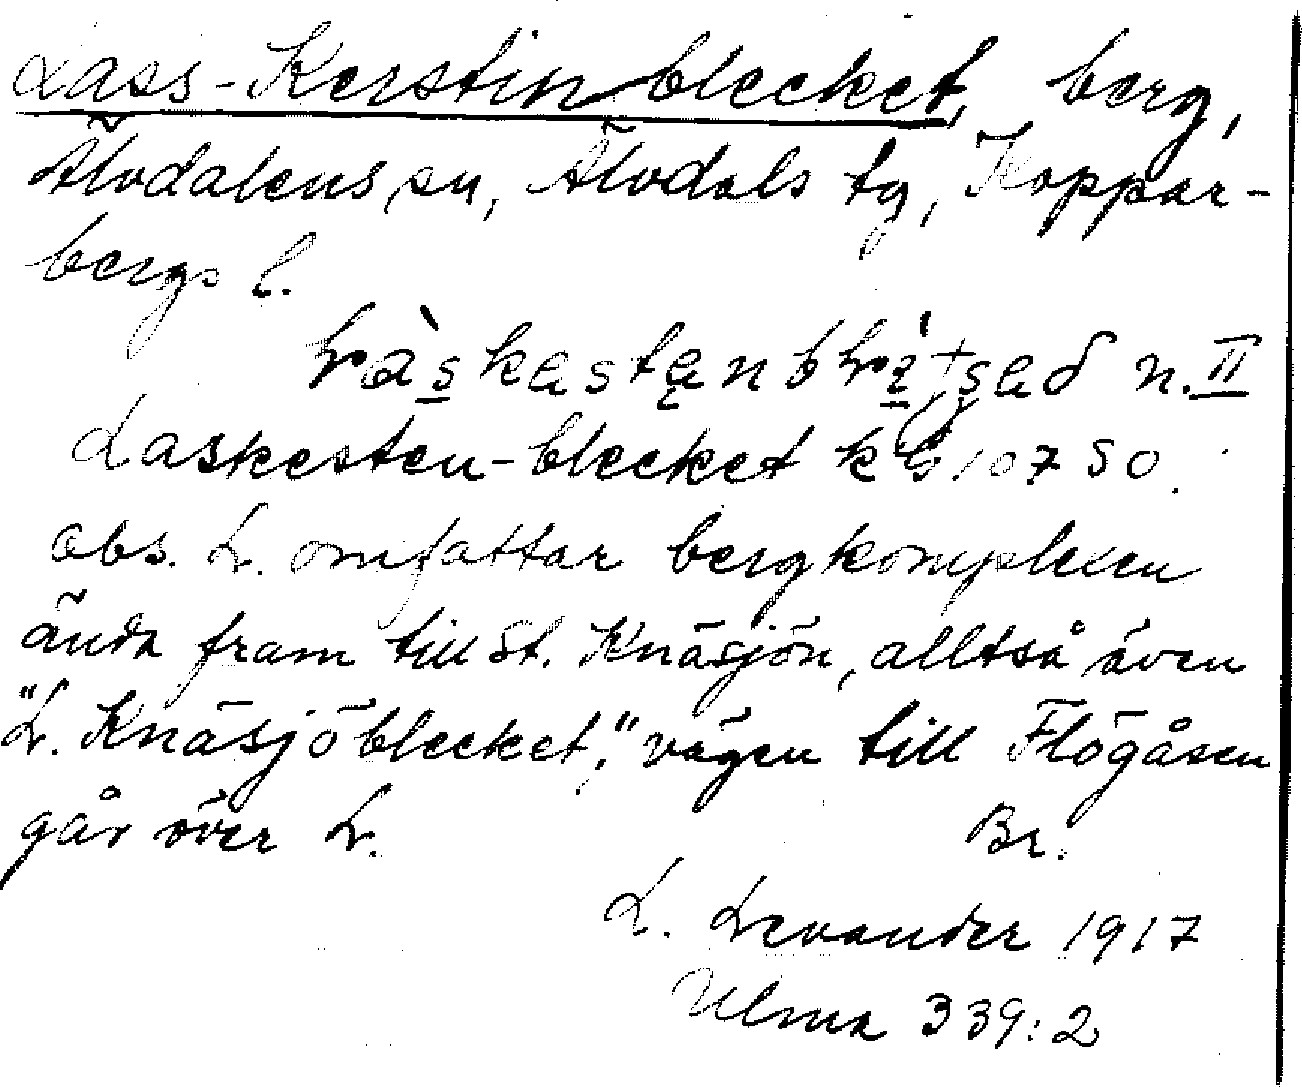 Lass-Kerstinblecket, berg,
Älvdalens sn, Älvdals tg, Koppar-
bergs l.
n. II
Laskesten-blecket kb 10750.
obs. L. omfattar bergkomplexen
ända fram till St. Knäsjön, alltså även
"L. Knäsjöblecket," vägen till Flögåsen
går över L. Br.
L. Levander 1917
Ulma 339:2